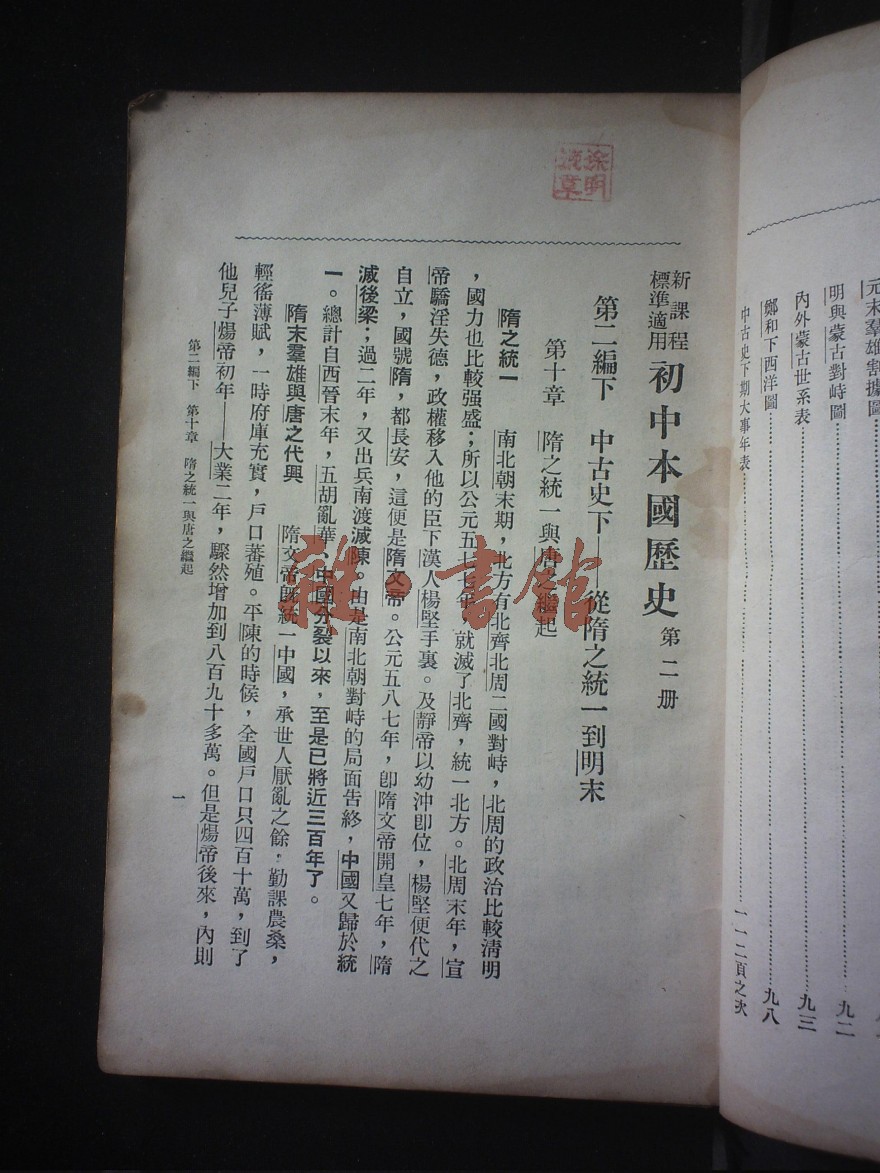 元末羣雄割據圖
明與蒙古對峙圖……九二
內外蒙古世系表……九三
鄭和下西洋圖……九八
中古史下期大事年表……一一二頁之次
新課程
標準適用
初中本國歷史 第二册
第二編下 中古史下——從隋之統一到明末
第十章 隋之統一與唐繼起
隋之統一 南北朝末期，北方有北齊北周二國對峙，北周的政治比較清明
，國力也比較强盛；所以公元五七七年，就滅了北齊，統一北方。北周末年，宣
帝驕淫失德，政權移入他的臣下漢人楊堅手裏。及靜帝以幼沖卽位，楊堅便代之
自立，國號隋，都長安，這便是隋文帝。公元五八七年，卽隋文帝開皇七年，隋
滅後梁；過二年，又出兵南渡滅陳。由是南北朝對峙的局面告終，中國又歸於統
一。總計自西晉末年，五胡亂華、中國分裂以來，至是已將近三百年了。
隋末羣雄與唐之代興 隋文帝旣統一中國，承世人厭亂之餘，勤課農桑，
輕徭薄賦，一時府庫充實，戶口蕃殖。平陳的時候，全國戶口只四百十萬，到了
他兒子煬帝初年——大業二年，驟然增加到八百九十多萬。但是煬帝後來，內則
第二編下 第十章 隋之統一與唐之繼起
一
雜·書館